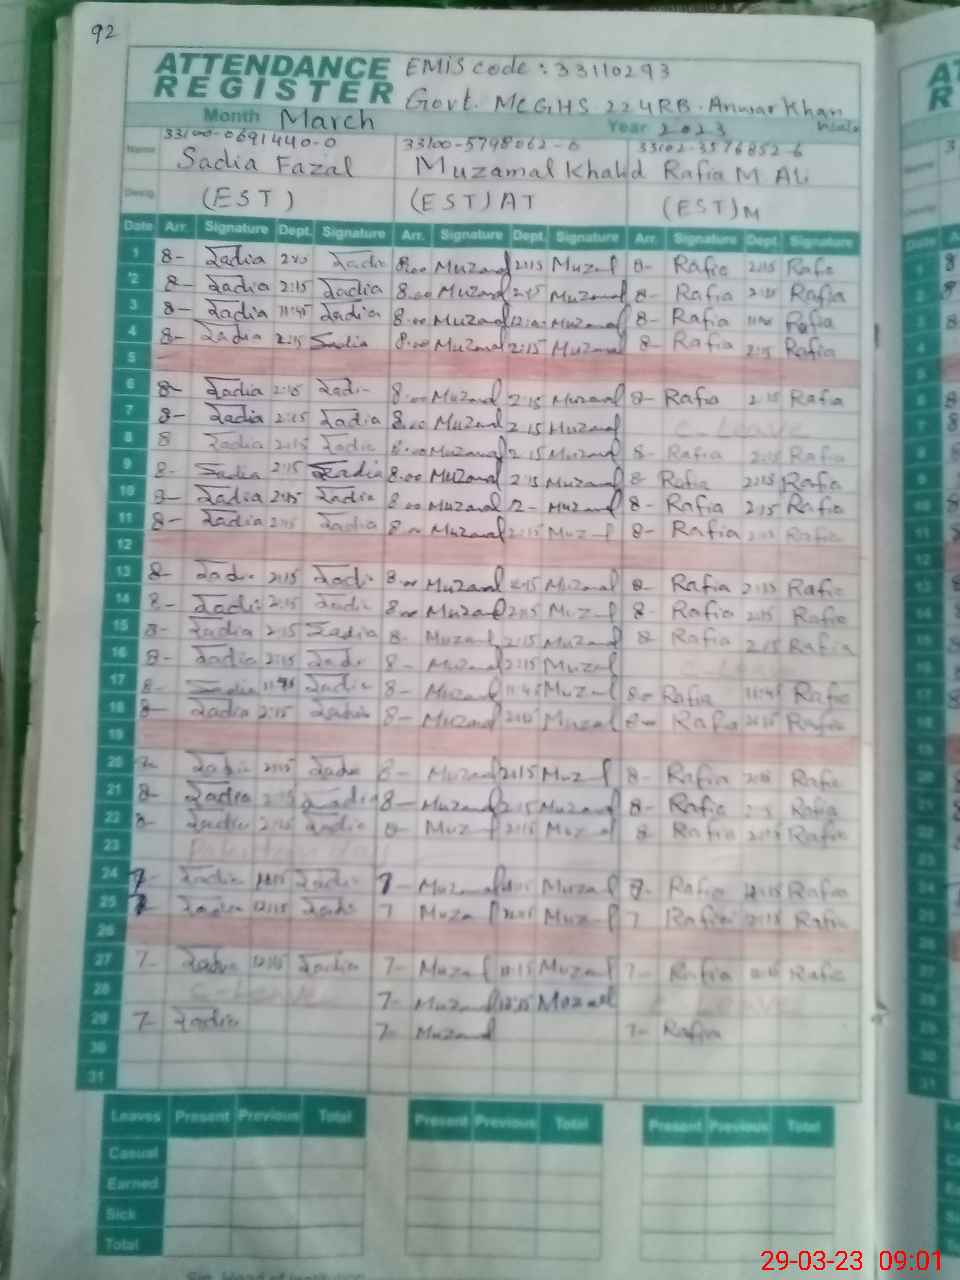 92
ATTENDANCE REGISTER
EMIS code : 33110293
Govt. MCGHS 224RB. Anwar Khan
Month March Year 2023
Name 33100-0691440-0 33100-5798062-6 33102-3576852-6
Sadia Fazal Muzamal Khalid Rafia M Ali
(EST) (EST) AT (EST) M
Date Arr. Signature Dept. Signature Arr. Signature Dept. Signature Arr. Signature Dept. Signature
1 8- Sadia Sadia 8.00 Muzamal 2:15 Muzamal 8- Rafia 2:15 Rafia
2 8- Sadia 2:15 Sadia 8.00 Muzamal 2:15 Muzamal 8- Rafia Rafia
3 8- Sadia 11:45 Sadia 8.00 Muzamal Muzamal 8- Rafia Rafia
4 8- Sadia 2:15 Sadia 8.00 Muzamal 2:15 Muzamal 8- Rafia 2:15 Rafia
5
6 8- Sadia 2:15 Sadia 8.00 Muzamal 2:15 Muzamal 8- Rafia 2:15 Rafia
7 8- Sadia 2:15 Sadia 8.00 Muzamal 2:15 Muzamal C-Leave
8 8 Sadia 2:15 Sadia 8.00 Muzamal 2:15 Muzamal 8- Rafia 2:15 Rafia
9 8- Sadia 2:15 Sadia 8.00 Muzamal 2:15 Muzamal 8- Rafia 2:15 Rafia
10 8- Sadia 2:15 Sadia 8.00 Muzamal 12- Muzamal 8- Rafia 2:15 Rafia
11 8- Sadia 2:15 Sadia 8.00 Muzamal 2:15 Muzamal 8- Rafia Rafia
12
13 8- Sadia 2:15 Sadia 8.00 Muzamal 2:15 Muzamal 8- Rafia 2:15 Rafia
14 8- Sadia 2:15 Sadia 8.00 Muzamal 2:15 Muzamal 8- Rafia 2:15 Rafia
15 8- Sadia 2:15 Sadia 8- Muzamal 2:15 Muzamal 8 Rafia 2:15 Rafia
16 8- Sadia 2:15 Sadia 8- Muzamal 2:15 Muzamal C-Leave
17 8- Sadia 11:45 Sadia 8- Muzamal 11:45 Muzamal Rafia 11:45 Rafia
18 8- Sadia 2:15 Sadia 8- Muzamal 2:15 Muzamal Rafia 2:15 Rafia
19
20 8- Sadia 2:15 Sadia 8- Muzamal 2:15 Muzamal 8- Rafia Rafia
21 8- Sadia 2:15 Sadia 8- Muzamal 2:15 Muzamal 8- Rafia Rafia
22 8- Sadia 2:15 Sadia 8- Muzamal 2:15 Muzamal 8 Rafia Rafia
23 Pakistan day
24 7- Sadia Sadia 7- Muzamal Muzamal 7- Rafia 12:15 Rafia
25 7 Sadia 12:15 Sadia 7 Muzamal Muzamal 7 Rafia 12:15 Rafia
26
27 7- Sadia 12:15 Sadia 7- Muzamal 12:15 Muzamal 7- Rafia Rafia
28 C-Leave 7- Muzamal 12:15 Muzamal C-Leave
29 7- Sadia 7- Muzamal 7- Rafia
30
31
Leaves Present Previous Total Present Previous Total Present Previous Total
Casual
Earned
Sick
Total
29-03-23 09:01